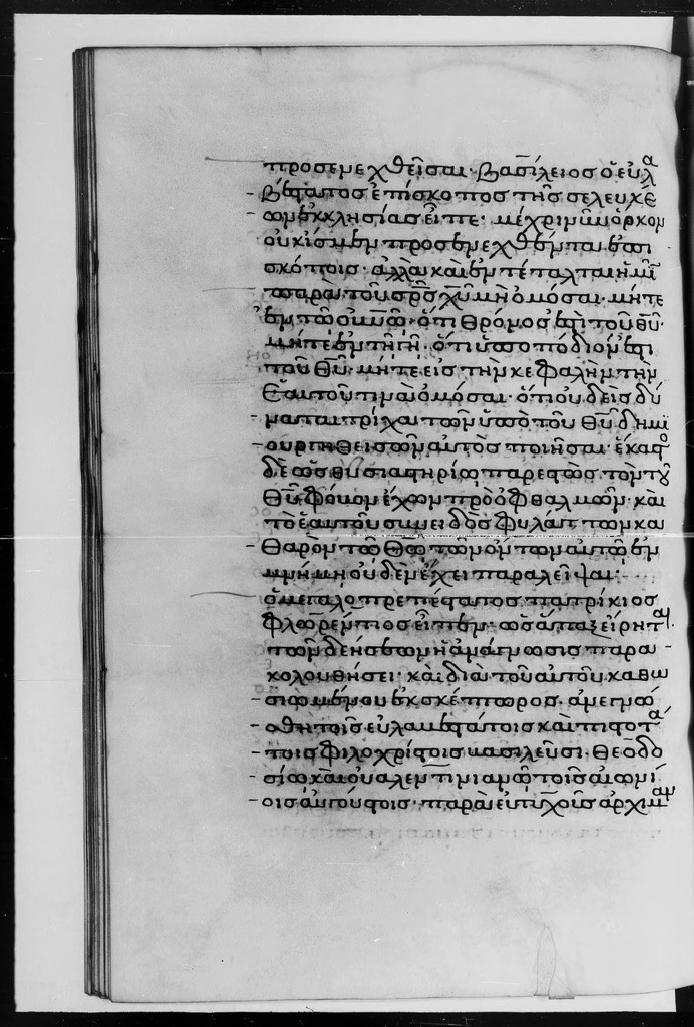 προσενεχθεῖσαι· βασίλειος ὁ εὐλα
βέστατος ἐπίσκοπος τῆς σελευκέ
ων ἐκκλησίας εἶπε· μέχρι νῦν ὅρκον
οὐκ ἴσμεν προσενεχθέντα ἐπι
σκόποις· ἀλλὰ καὶ ἐντέταλται ἡμῖ
παρὰ τοῦ σρ̅ς χυ̅ μὴ ὀμόσαι· μήτε
ἐν τῶ οὐνῶ· ὅτι θρόνος ἐστὶ τοῦ θυ̅·
μήτε ἐν τῆ γῆ· ὅτι ὑποπόδιον ἐστι
τοῦ θυ̅· μήτε εἰς τὴν κεφαλήν τὴν
ἑαυτοῦ τινὰ ὀμόσαι· ὅτι οὐδεὶς δύ
ναται τρίχα τῶν ὑπὸ τοῦ θυ̅ δημι
ουργηθεισῶν αὐτὸς ποιῆσαι· ἕκαστο
δὲ ὡς θυσιαστηρίω παρεστὼς τὸν τοῦ
θυ̅ φόβον ἔχων πρὸ ὀφθαλμῶν· καὶ
τὸ ἑαυτοῦ συνειδὸς φυλάττων κα
θαρὸν τῶ θω̅ τῶν ὄντων αὐτῶ ἐν
μνήμη οὐδὲν ἔχει παραλεῖψαι:
ὁ μεγαλοπρεπέστατος πατρίκιος
φλωρέντιος εἶπεν· ὡς ἅπαξ εἴρηται
τῶν δεήσεων ἡ ἀνάγνωσις παρα
κολουθήσει· καὶ διὰ τοῦ αὐτοῦ καθω
σιωμένου ἐκσκέπτωρος· ἀνεγνώ
σθη τοῖς εὐλαβεστάτοις καὶ πιστοτά
τοις φιλοχρίστοις βασιλεῦσι· θεοδο
σίω καὶ οὐαλεντινιανῶ τοῖς αἰωνί
οις αὐγούστοις· παρὰ εὐτυχοῦς ἀρχιμαν